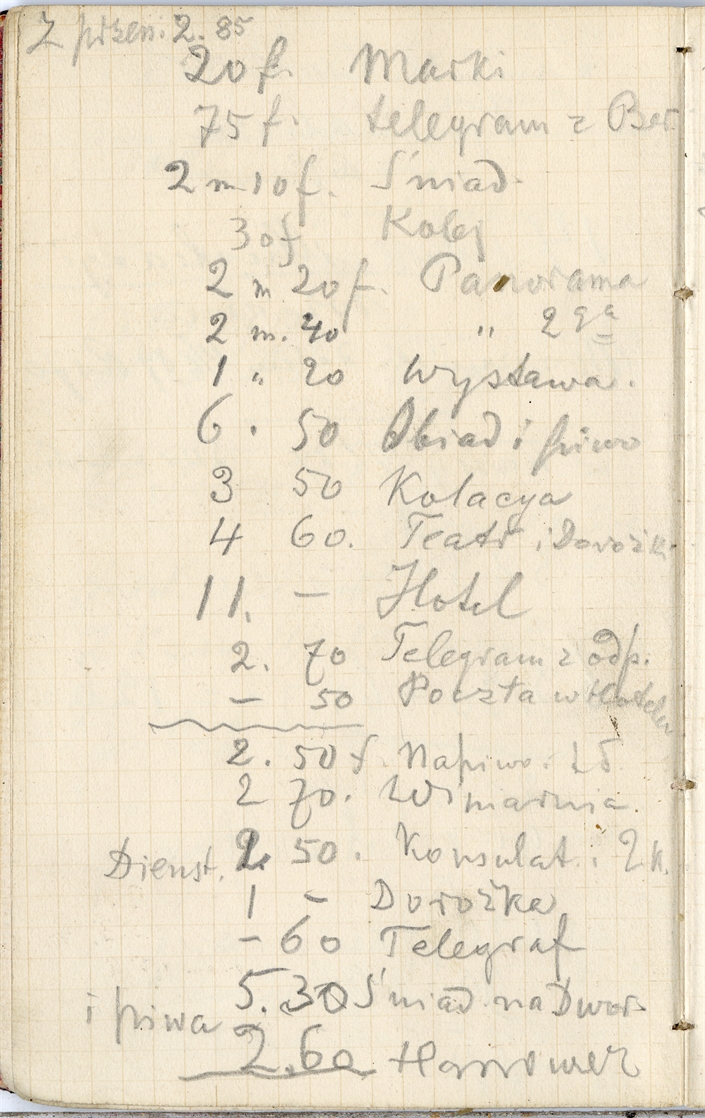 Z przen. 2.85
20 f. Marki
75 f. telegram z Ber.
2 m 10 f. Śniad.
30 f Kolej
2 m 20 f. Panorama
2 m. 40 " 2ga
1 " 20 Wystawa.
6 . 50 Obiad i piwo
3 50 Kolacya
4 60. Teatr i Dorożk
11. – Hotel
2. 70 Telegram z odp.
– 50 Poczta w Hotelu
2. 50 f. Napiwo
2 70. Winiarnia
Dienst. 2 50. Konsulat. i 2 k.
1 – Dorożka
– 60 Telegraf
5. 30 Śniad. na Dwor.
i piwa
2.60 Hannower